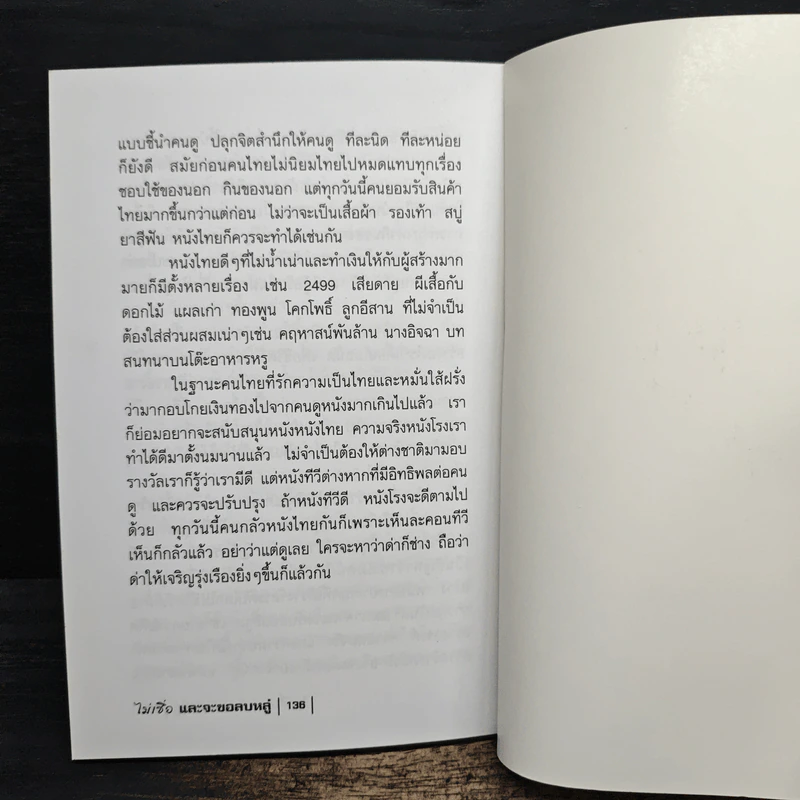 แบบชี้นำคนดู ปลุกจิตสำนึกให้คนดู ทีละนิด ทีละหน่อย
ก็ยังดี สมัยก่อนคนไทยไม่นิยมไทยไปหมดแทบทุกเรื่อง
ชอบใช้ของนอก กินของนอก แต่ทุกวันนี้คนยอมรับสินค้า
ไทยมากขึ้นกว่าแต่ก่อน ไม่ว่าจะเป็นเสื้อผ้า รองเท้า สบู่
ยาสีฟัน หนังไทยก็ควรจะทำได้เช่นกัน
หนังไทยดีๆที่ไม่น้ำเน่าและทำเงินให้กับผู้สร้างมาก
มายก็มีตั้งหลายเรื่อง เช่น 2499 เสียดาย ผีเสื้อกับ
ดอกไม้ แผลเก่า ทองพูน โคกโพธิ์ ลูกอีสาน ที่ไม่จำเป็น
ต้องใส่ส่วนผสมเน่าๆเช่น คฤหาสน์พันล้าน นางอิจฉา บท
สนทนาบนโต๊ะอาหารหรู
ในฐานะคนไทยที่รักความเป็นไทยและหมั่นไส้ฝรั่ง
ว่ามากอบโกยเงินทองไปจากคนดูหนังมากเกินไปแล้ว เรา
ก็ย่อมอยากจะสนับสนุนหนังหนังไทย ความจริงหนังโรงเรา
ทำได้ดีมาตั้งนมนานแล้ว ไม่จำเป็นต้องให้ต่างชาติมามอบ
รางวัลเราก็รู้ว่าเรามีดี แต่หนังทีวีต่างหากที่มีอิทธิพลต่อคน
ดู และควรจะปรับปรุง ถ้าหนังทีวีดี หนังโรงจะดีตามไป
ด้วย ทุกวันนี้คนกลัวหนังไทยกันก็เพราะเห็นละคอนทีวี
เห็นก็กลัวแล้ว อย่าว่าแต่ดูเลย ใครจะหาว่าด่าก็ช่าง ถือว่า
ด่าให้เจริญรุ่งเรืองยิ่งๆขึ้นก็แล้วกัน
ไม่เชื่อ และจะขอลบหลู่ | 136 |